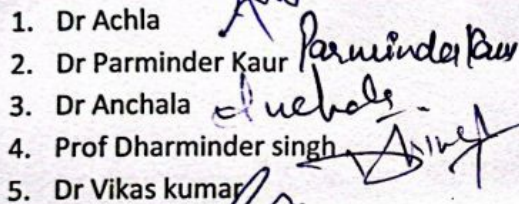 1. Dr Achla
2. Dr Parminder Kaur Parminder Kaur
3. Dr Anchala Anchala
4. Prof Dharminder singh
5. Dr Vikas kumar